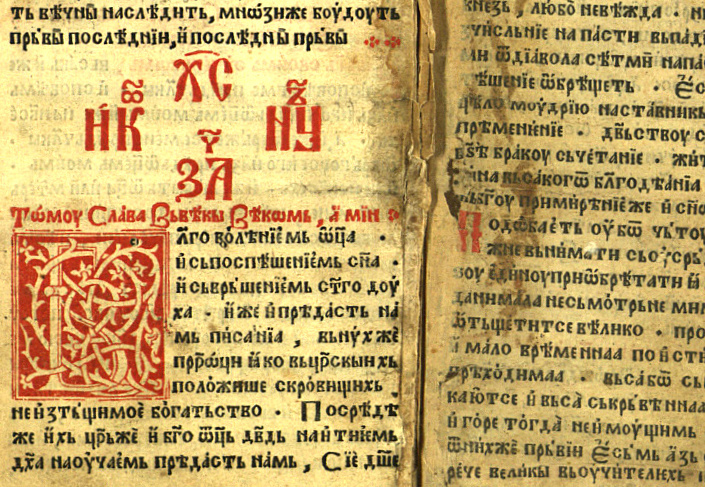 ть вѣчны̑ наслѣдить, мнѡ́зиже боу́доуть
пр̑вы̑ послѣдніи, и҆ послѣдны̑ пр̑вы̑
х҃с
и҆к
нꙋ
за
Тѡ́моу Сла́ва Въвѣ́кы Вѣ́кѡмь, а҆ ми́н
Б
лгѡ волѣ́нїе́мь ѿц҃а ·
и҆ съпоспѣше́нїе́мь сн҃а ·
и҆ съврьше́нїе́мь ст҃го доу
ха · и҆же и҆ прѣ́дасть на́
мь писа́нїа , вьну́хже
прр҃о́ци ꙗ҆́ко вьцр҃скыи хь
поло́жише скро́вищихь
не и҆зтьщи́моѐ бога́тьство · Посрѣ́дѣ
же и҆́хь цр҃ь же и҆ бг҃о ѿц҃ь дв҃дь наи́тїе́мь
дх҃а наоуча́емь прѣ́дасть на́мь , Сїѐ дш҃е
кнезь , любо̀ невѣжда
на пасти вьпад
ѿ дїа́вола сѣтмѝ напа
ѿбрѣ́щеть · Е҆с
цѣло моу́дрїю наста́вникы
прѣмѣне́нїе · дѣ́вьствоу с
бра́коу сьчета́нїе · жит
вьса́когѡ бл҃годѣ́анїа
бг҃оу примире́нїе же и҆ сп҃с
Подѡба́еть оу҆́бѡ чьтоу
же внима́ти сьоусръ
є҆ди́ноу приѡбрѣта́ти и҆
да нима́ла несьмо́трьне ми
ѿтьщети́тсе вели́ко · про
и҆ ма́ло врѣ́меннаа поистї
прѣхо́димаа · вьса́бѡ сь
каю́тсе и҆ вьса̀ съкрьве́ннаа
и҆ го́ре тогда̀ неимоу́щимь
ѿ ни́хже пръ́вїи е҆́сьмь а҆́зь
ре́че вели́кы вьоучи́телехь